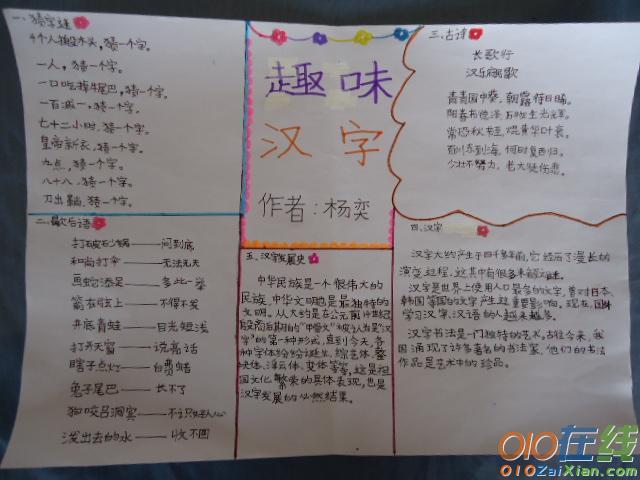 一、猜字谜
4个人搬木头,猜一个字。
一人,猜一个字。
一口吃掉牛尾巴,猜一个字。
一百减一,猜一个字。
七十二小时,猜一个字。
皇帝新衣,猜一个字。
九点,猜一个字。
八十八,猜一个字。
刀出鞘,猜一个字。
二、歇后语
打破砂锅——问到底
和尚打伞——无法无天
画蛇添足——多此一举
箭在弦上——不得不发
井底青蛙——目光短浅
打开天窗——说亮话
瞎子点灯——白费蜡
兔子尾巴——长不了
狗咬吕洞宾——不识好人心
泼出去的水——收不回
趣味
汉字
作者:杨奕
五、汉字发展史
中华民族是一个很伟大的
民族,中华文明也是最独特的
文明。从大约是在公元前14世纪
殷商后期的"甲骨文"被认为是"汉
字"的第一种形式,直到今天,各
种字体纷纷诞生,综艺体、整
块体、浮云体、变体等等,这是祖
国文化繁荣的具体表现,也是
汉字发展的必然结果。
三、古诗
长歌行
汉乐府民歌
青青园中葵,朝露待日晞。
阳春布德泽,万物生光辉。
常恐秋节至,焜黄华叶衰。
百川东到海,何时复西归。
少壮不努力,老大徒伤悲
四、汉字
汉字大约产生于四千多年前,它经历了漫长的
演变过程,这其中有很多未解之谜。
汉字是世界上使用人口最多的文字,曾对日本、
韩国等国的文字产生过重要影响。现在,国外
学习汉字、汉语的人越来越多。
汉字书法是一门独特的艺术,古往今来,我
国涌现了许多著名的书法家,他们的书法
作品是艺术中的珍品。
010在线
010ZaiXian.com